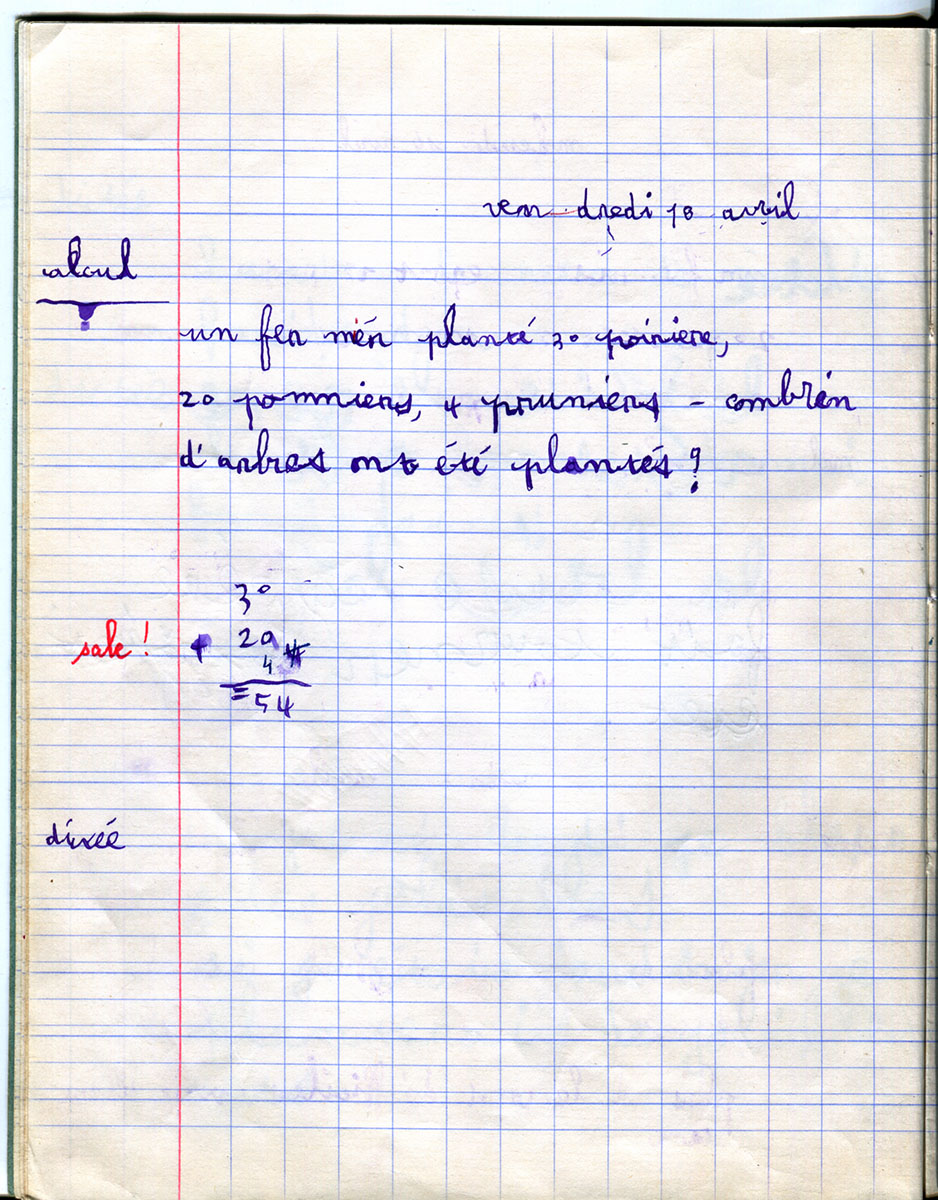 ven dredi 18 avril
calcul
un fer mén planté 30 poiriere,
20 pommiers, 4 pruniers - combién
d'arbres ont été plantés ?
30
sale ! + 20
4
= 54
dicéé